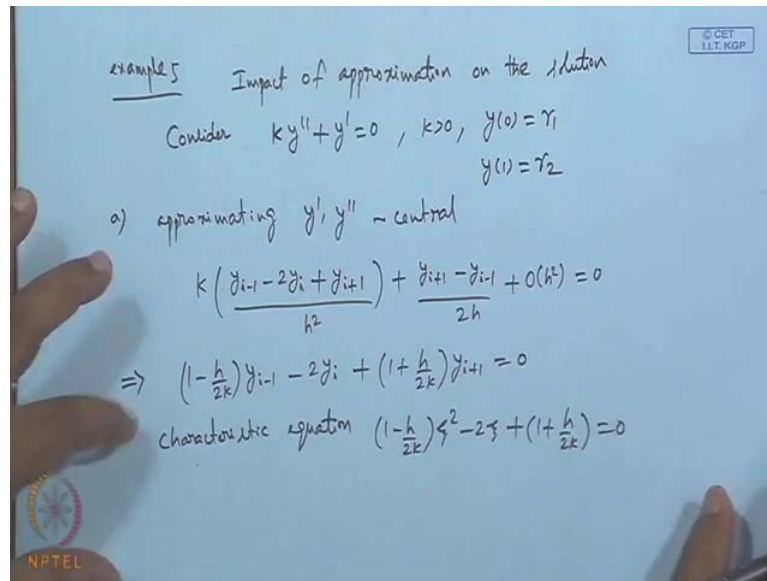 © CET
I.I.T. KGP
example 5 Impact of approximation on the solution
Consider ky'' + y' = 0 , k>0, y(0) = γ₁
y(1) = γ₂
a) approximating y', y'' ~ central
k ( (y_{i-1} - 2y_i + y_{i+1}) / h² ) + (y_{i+1} - y_{i-1}) / 2h + O(h²) = 0
⇒ (1 - h/2k) y_{i-1} - 2y_i + (1 + h/2k) y_{i+1} = 0
characteristic equation (1 - h/2k) ξ² - 2ξ + (1 + h/2k) = 0
NPTEL